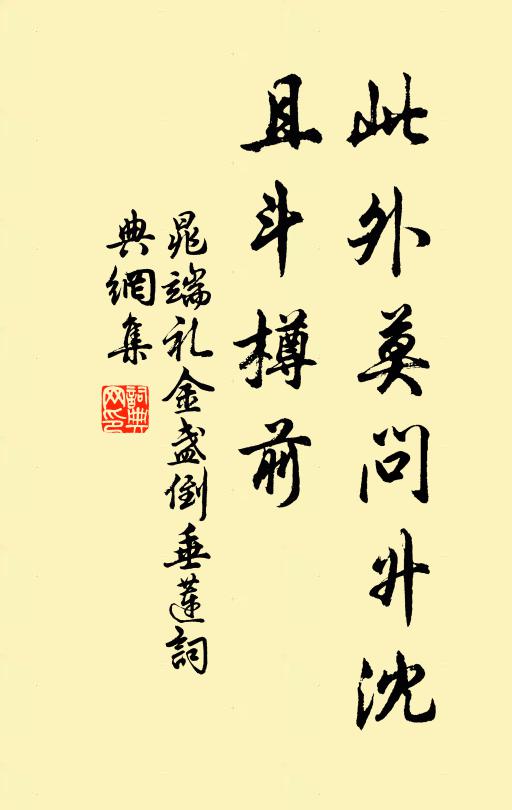 此外莫问升沈
且斗樽前
晁端礼金盏倒垂莲詞
典網集
詞典网印